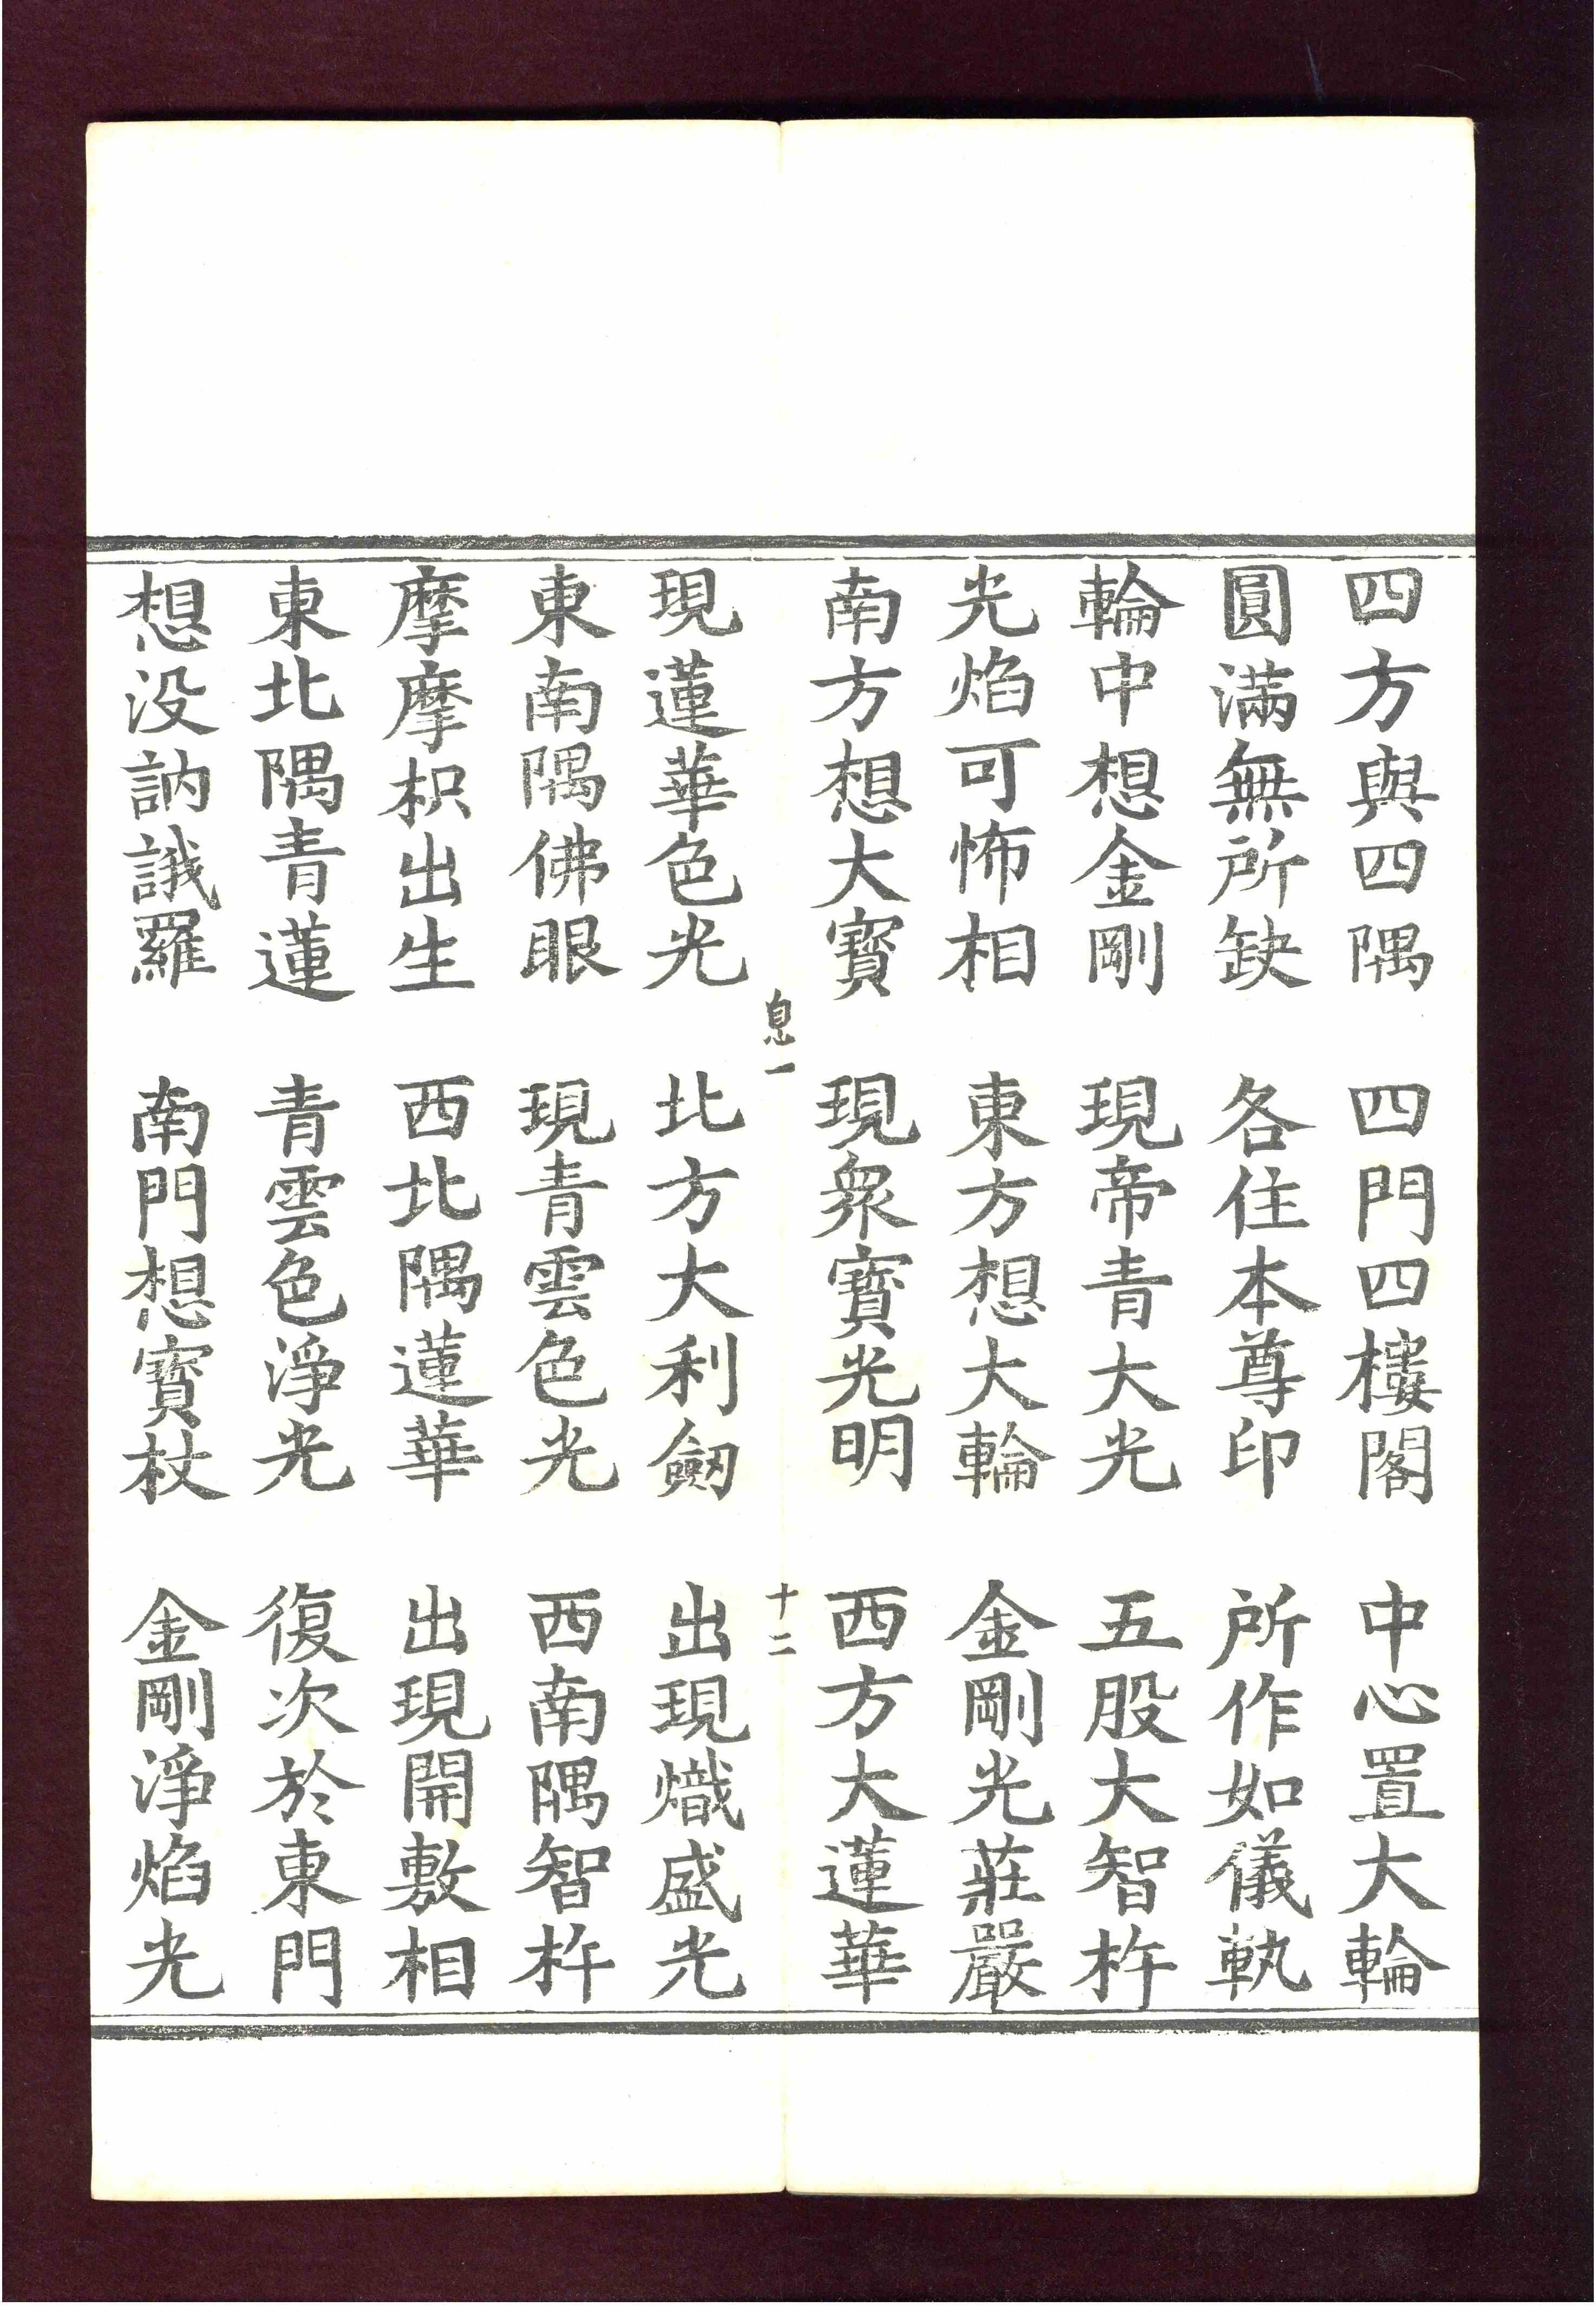 四方與四隅　四門四樓閣　中心置大輪
圓滿無所缺　各住本尊印　所作如儀軌
輪中想金剛　現帝青大光　五股大智杵
光焰可怖相　東方想大輪　金剛光莊嚴
南方想大寶　現衆寶光明　西方大蓮華
息一　十二
現蓮華色光　北方大利劒　出現熾盛光
東南隅佛眼　現青雲色光　西南隅智杵
摩摩枳出生　西北隅蓮華　出現開敷相
東北隅青蓮　青雲色淨光　復次於東門
想没訥誐羅　南門想寶杖　金剛淨焰光